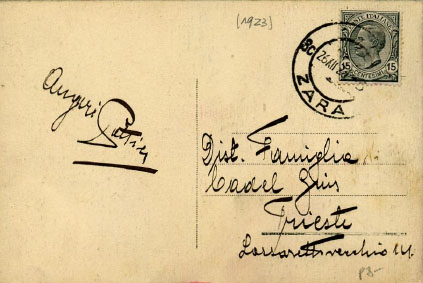 [1923]
POSTE ITALIANE
15 CENTESIMI 15
26 XII
ZARA
Auguri
Dist. Famiglia
Cadel Guis
Trieste
Lazzaretto vecchio
p8-